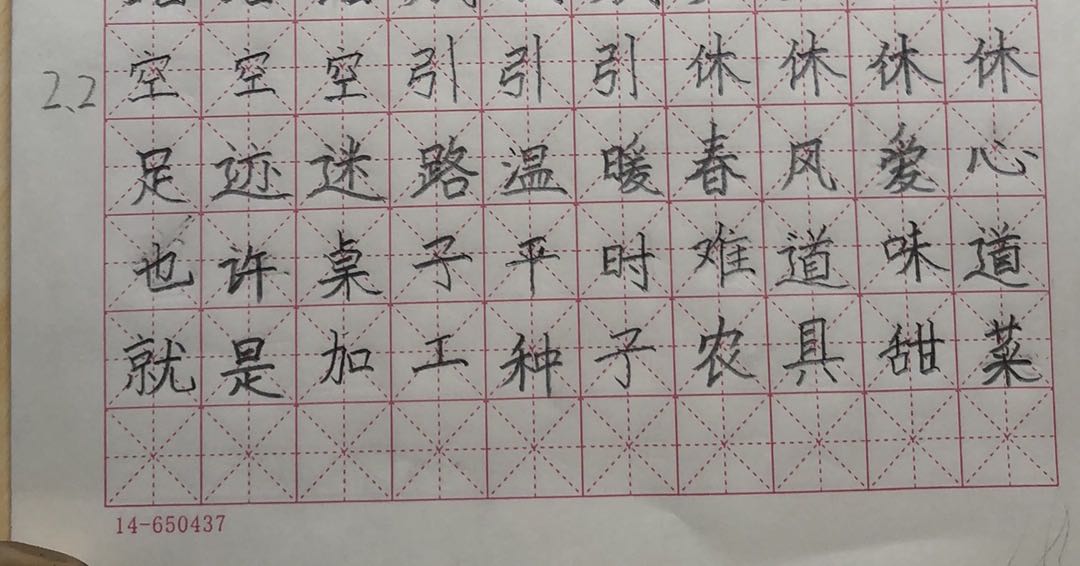 2.2 空 空 空 引 引 引 休 休 休 休
足 迹 迷 路 温 暖 春 风 爱 心
也 许 桌 子 平 时 难 道 味 道
就 是 加 工 种 子 农 具 甜 菜
14-650437